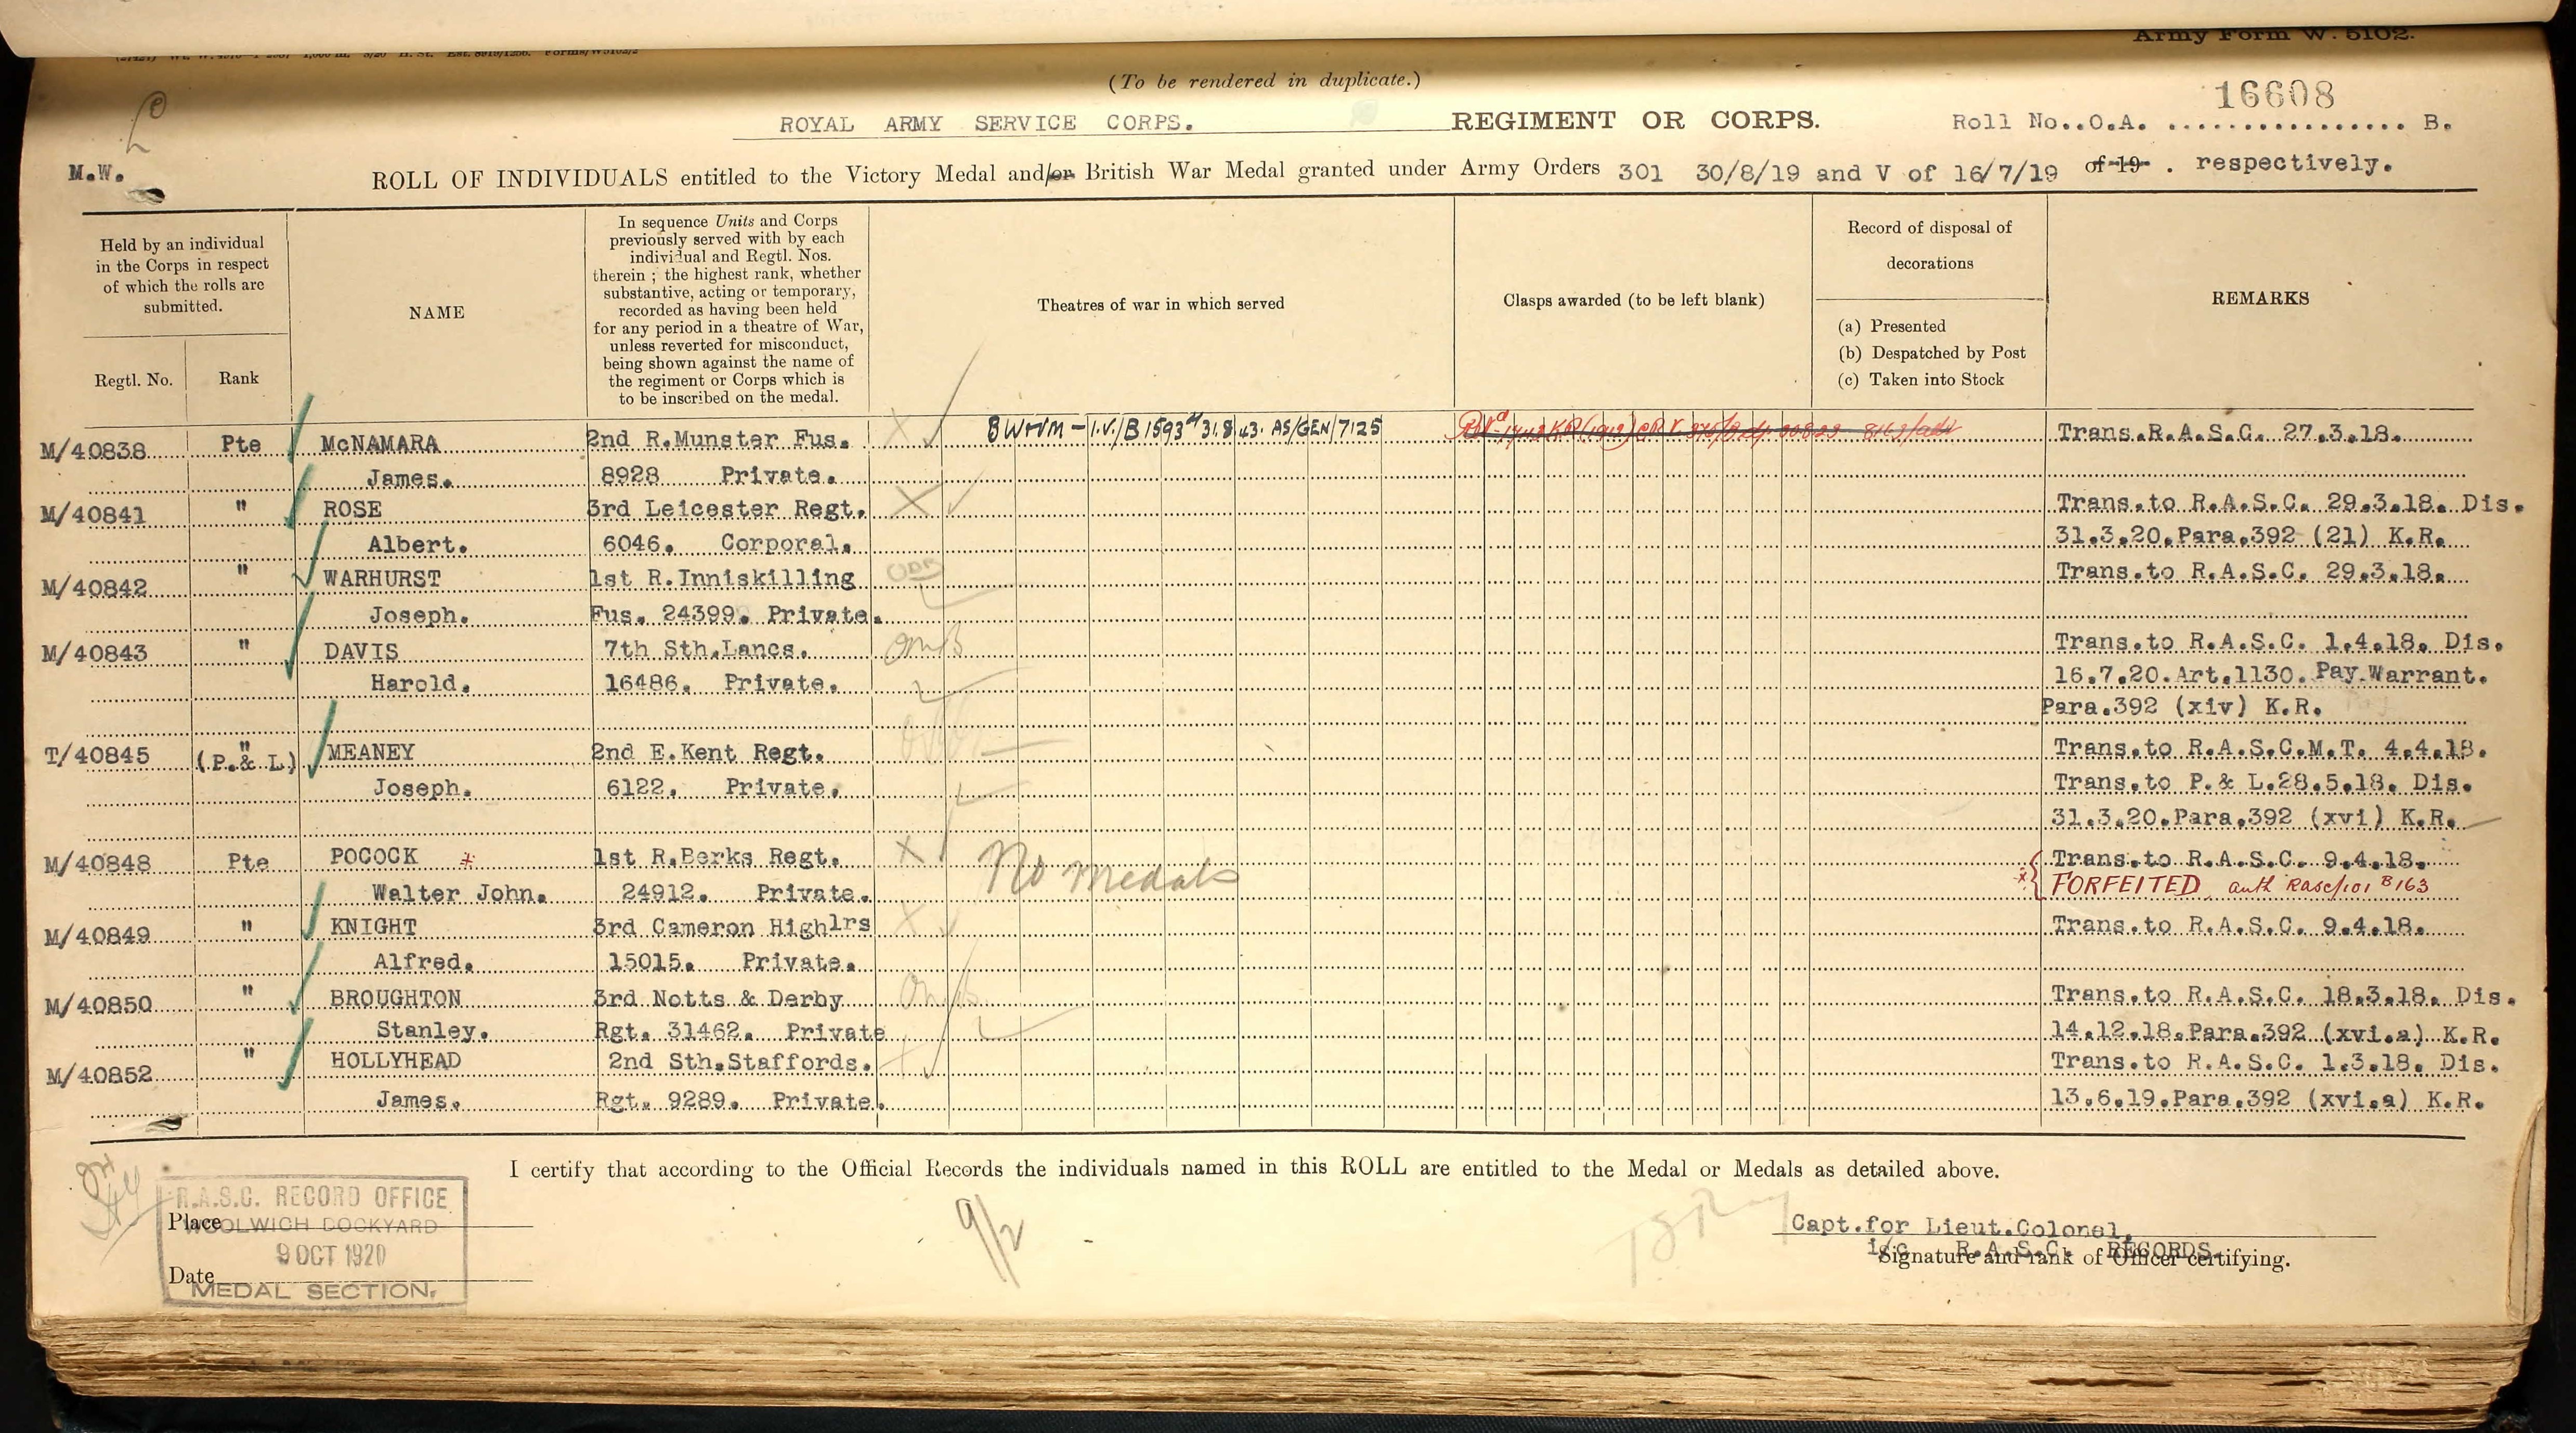 Army Form W. 5102.
(To be rendered in duplicate.)
16608
ROYAL ARMY SERVICE CORPS. REGIMENT OR CORPS. Roll No..O.A. ................ B.
M.W.
ROLL OF INDIVIDUALS entitled to the Victory Medal and/or British War Medal granted under Army Orders 301 30/8/19 and V of 16/7/19 of 19 . respectively.
Held by an individual
in the Corps in respect
of which the rolls are
submitted.
Regtl. No. Rank
NAME
In sequence Units and Corps
previously served with by each
individual and Regtl. Nos.
therein ; the highest rank, whether
substantive, acting or temporary,
recorded as having been held
for any period in a theatre of War,
unless reverted for misconduct,
being shown against the name of
the regiment or Corps which is
to be inscribed on the medal.
Theatres of war in which served
Clasps awarded (to be left blank)
Record of disposal of
decorations
(a) Presented
(b) Despatched by Post
(c) Taken into Stock
REMARKS
M/40838 Pte McNAMARA 2nd R.Munster Fus. BWVM - I.V./B 1593 31.8.43. AS/GEN/7125 Trans.R.A.S.C. 27.3.18.
James. 8928 Private.
M/40841 " ROSE 3rd Leicester Regt. Trans.to R.A.S.C. 29.3.18. Dis.
Albert. 6046. Corporal. 31.3.20.Para.392 (21) K.R.
M/40842 " WARHURST 1st R.Inniskilling Trans.to R.A.S.C. 29.3.18.
Joseph. Fus. 24399. Private.
M/40843 " DAVIS 7th Sth.Lancs. Trans.to R.A.S.C. 1.4.18. Dis.
Harold. 16486. Private. 16.7.20.Art.1130. Pay Warrant.
Para.392 (xiv) K.R.
T/40845 " (P.& L) MEANEY 2nd E.Kent Regt. Trans.to R.A.S.C.M.T. 4.4.18.
Joseph. 6122. Private. Trans.to P.& L.28.5.18. Dis.
31.3.20.Para.392 (xvi) K.R.
M/40848 Pte POCOCK 1st R.Berks Regt. No Medals Trans.to R.A.S.C. 9.4.18.
Walter John. 24912. Private. FORFEITED auth RASC/101 B163
M/40849 " KNIGHT 3rd Cameron Highlrs Trans.to R.A.S.C. 9.4.18.
Alfred. 15015. Private.
M/40850 " BROUGHTON 3rd Notts & Derby Trans.to R.A.S.C. 18.3.18. Dis.
Stanley. Rgt. 31462. Private 14.12.18.Para.392 (xvi.a) K.R.
M/40852 " HOLLYHEAD 2nd Sth.Staffords. Trans.to R.A.S.C. 1.3.18. Dis.
James. Rgt. 9289. Private. 13.6.19.Para.392 (xvi.a) K.R.
I certify that according to the Official Records the individuals named in this ROLL are entitled to the Medal or Medals as detailed above.
R.A.S.C. RECORD OFFICE
Place WOOLWICH DOCKYARD
9 OCT 1920
Date
MEDAL SECTION.
9/2
Capt.for Lieut.Colonel,
i/c R.A.S.C. RECORDS.
Signature and rank of Officer certifying.